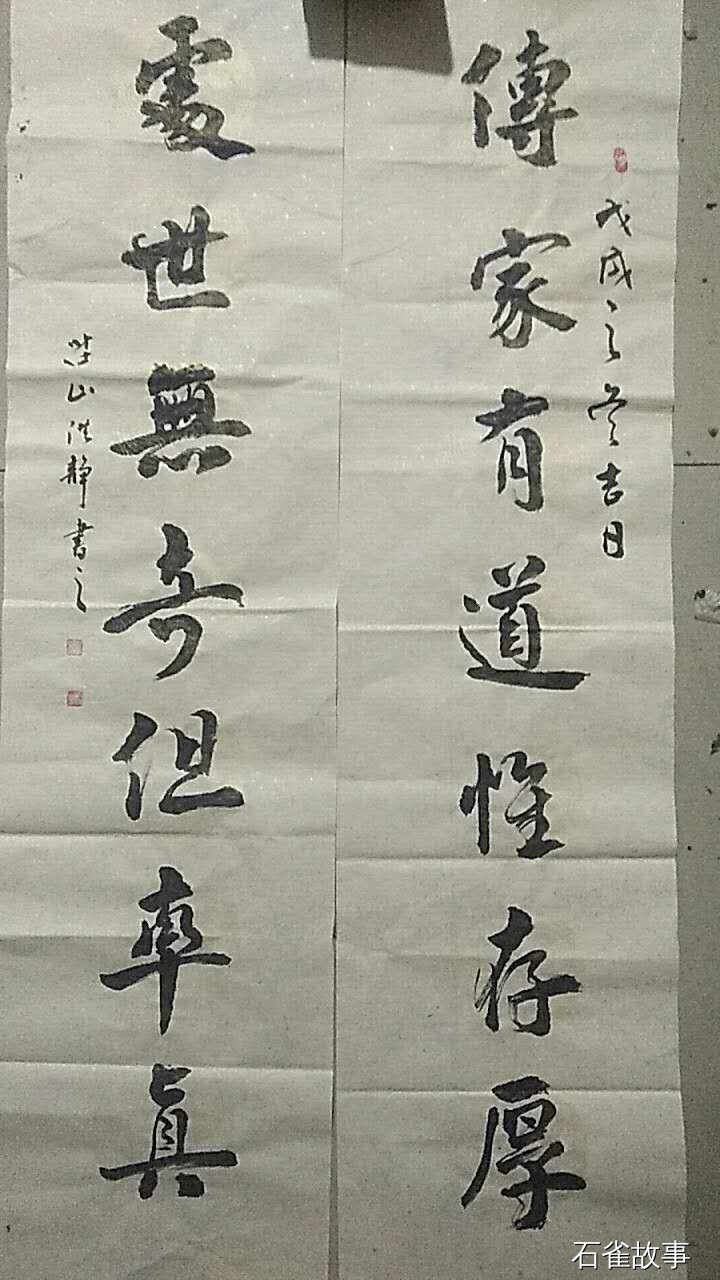 傳家有道惟存厚
戊戌之冬吉日
處世無奇但率真
山洪静書之
石雀故事